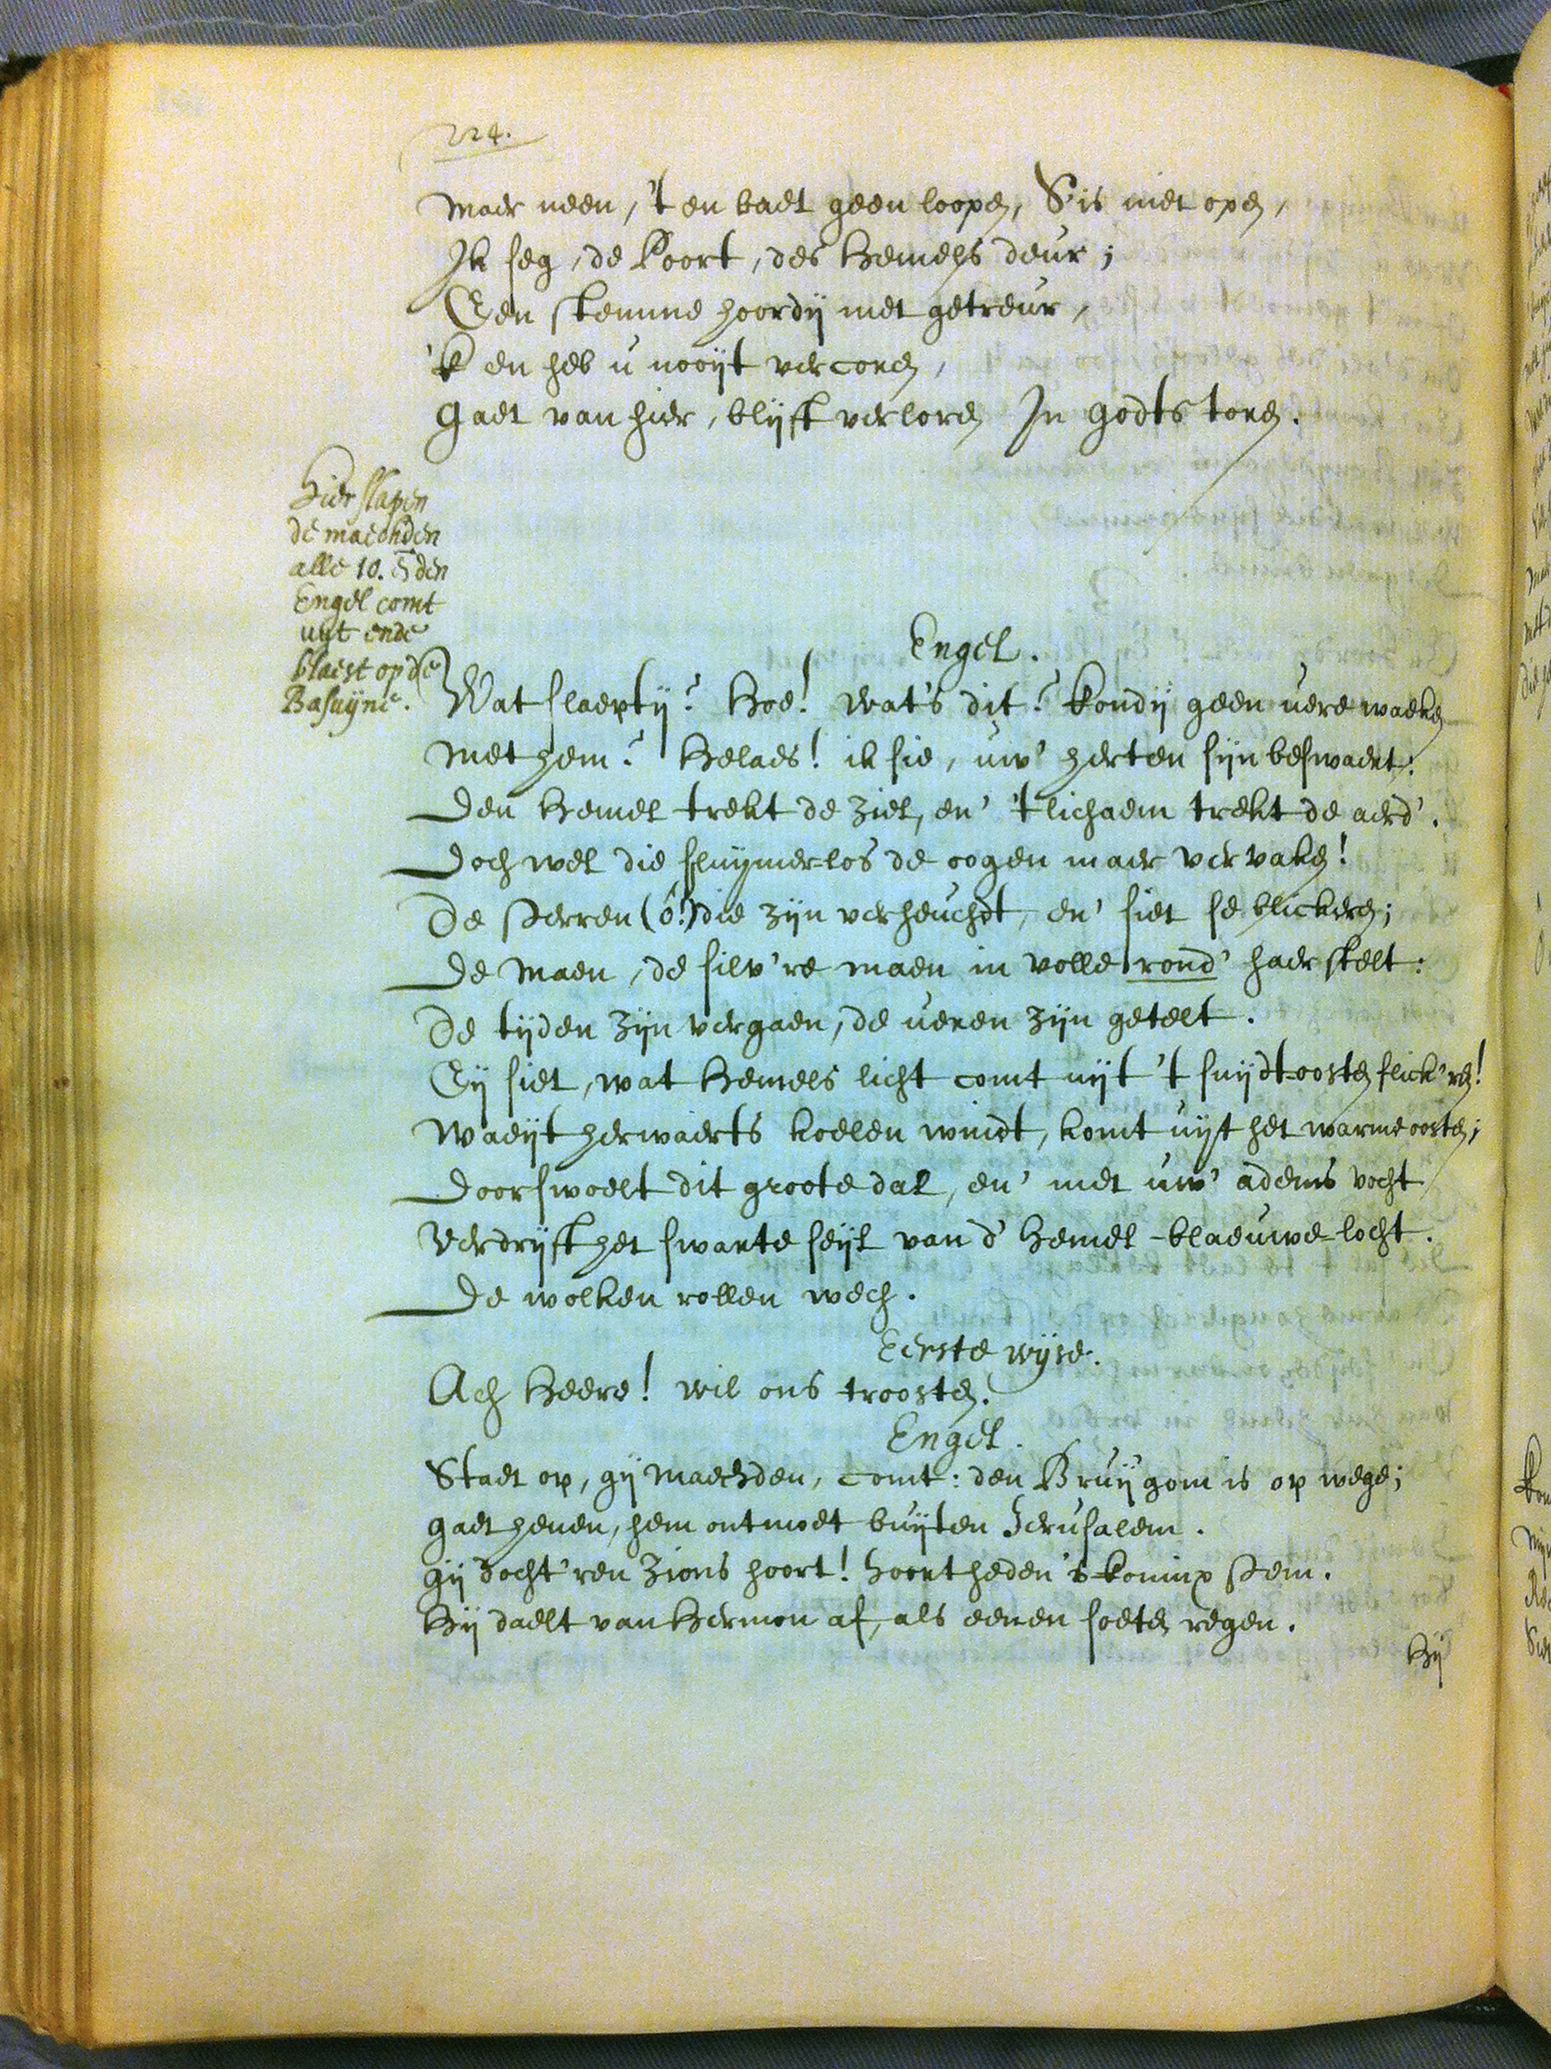 224.
Maer neen, 't en baet geen loopen, S'is niet open,
Ik seg, de Poort, des Hemels deur;
Een stemme hoordij met getreur,
'k en heb u nooijt vercoren,
Gaet van hier, blijft verloren In Godts toren.
Hier slapen
de maechden
alle 10. en den
Engel comt
uyt ende
blaest op de
Basuyne.
Engel.
Wat slaeptij? Hoe! wat's dit? kondij geen uere waeken
Met hem? Helaes! ik sie, uw' herten sijn beswaert:
Den Hemel trekt de Ziel, en' 't lichaem trekt de aerd'.
Doch wel die sluijmerlos de oogen maer vervaken!
De sterren (ô!) die zijn verheucht, en' siet se blickeren;
De Maen, de silv're maen in volle rond' haer stelt:
De tijden zijn vergaen, de ueren zijn getelt.
Eij siet, wat Hemels licht comt uijt 't suijdtoosten flick'ren!
Waeijt herwaerts koelen windt, komt uijt het warme oosten;
Doorswoelt dit groote dal, en' met uw' adems vocht
Verdrijft het swarte seijl van d' Hemel-blaeuwe locht.
De wolken rollen wech.
Eerste wijse.
Ach Heere! wil ons troosten.
Engel.
Staet op, gij Maechden, comt: den Bruijgom is op wege;
gaet henen, hem ontmoet buijten Jerusalem.
gij docht'ren Zions hoort! hoort heden 's koninx stem.
Hij daelt van Hermon af, als eenen soeten regen.
Hij